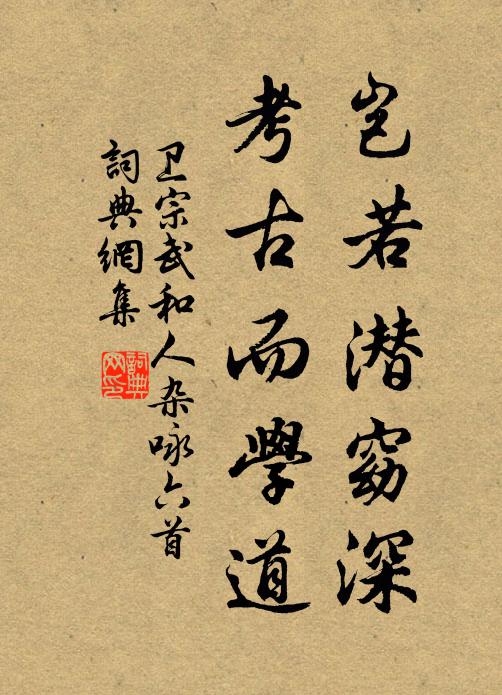 岂若潜窈深
考古而學道
卫宗武和人杂咏六首
詞典網集
詞典网印